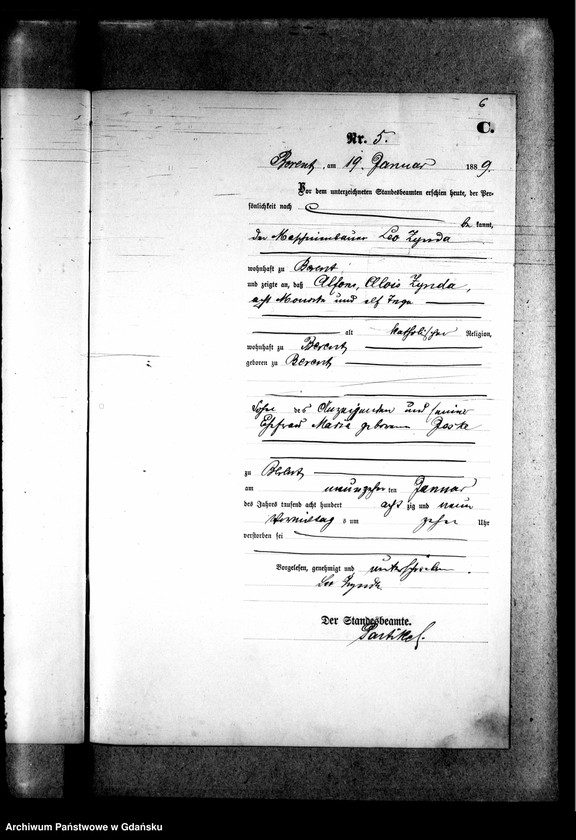 6
C.
Nr. 5.
Berent, am 19. Januar 1889.
Vor dem unterzeichneten Standesbeamten erschien heute, der Per-
sönlichkeit nach
be kannt,
der Maschinenbauer Leo Zynda
wohnhaft zu Berent
und zeigte an, daß Alfons, Alois Zynda,
acht Monate und elf Tage
alt katholischer Religion,
wohnhaft zu Berent
geboren zu Berent
Sohn des Anzeigenden und seiner
Ehefrau Maria geborenen Jeske
zu Berent
am neunzehn ten Januar
des Jahres tausend acht hundert acht zig und neun
Vormittag s um zehn Uhr
verstorben sei
Vorgelesen, genehmigt und unterschrieben.
Leo Zynda
Der Standesbeamte.
Archiwum Państwowe w Gdańsku